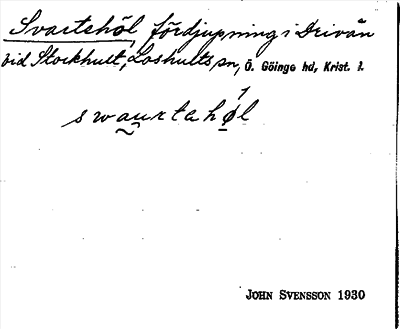 Svartehöl, fördjupning i Drivån
vid Stockhult, Loshults sn, Ö. Göinge hd, Krist. l.
swau̯rtahø̱´l
JOHN SVENSSON 1930